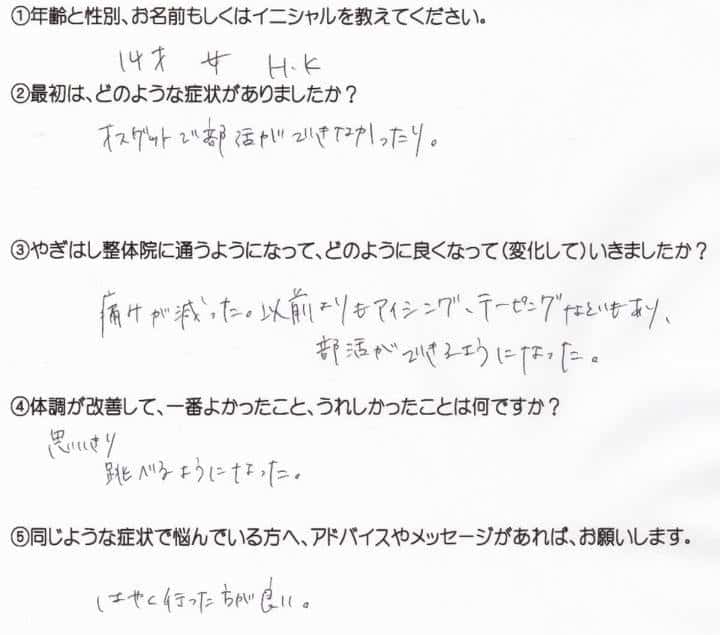 ①年齢と性別、お名前もしくはイニシャルを教えてください。
14才 女 H.K
②最初は、どのような症状がありましたか？
オスグットで部活ができなかったり。
③やぎはし整体院に通うようになって、どのように良くなって（変化して）いきましたか？
痛みが減った。以前よりもアイシング、テーピングなどもあり、
部活ができるようになった。
④体調が改善して、一番よかったこと、うれしかったことは何ですか？
思いっきり
跳べるようになった。
⑤同じような症状で悩んでいる方へ、アドバイスやメッセージがあれば、お願いします。
はやく行った方が良い。